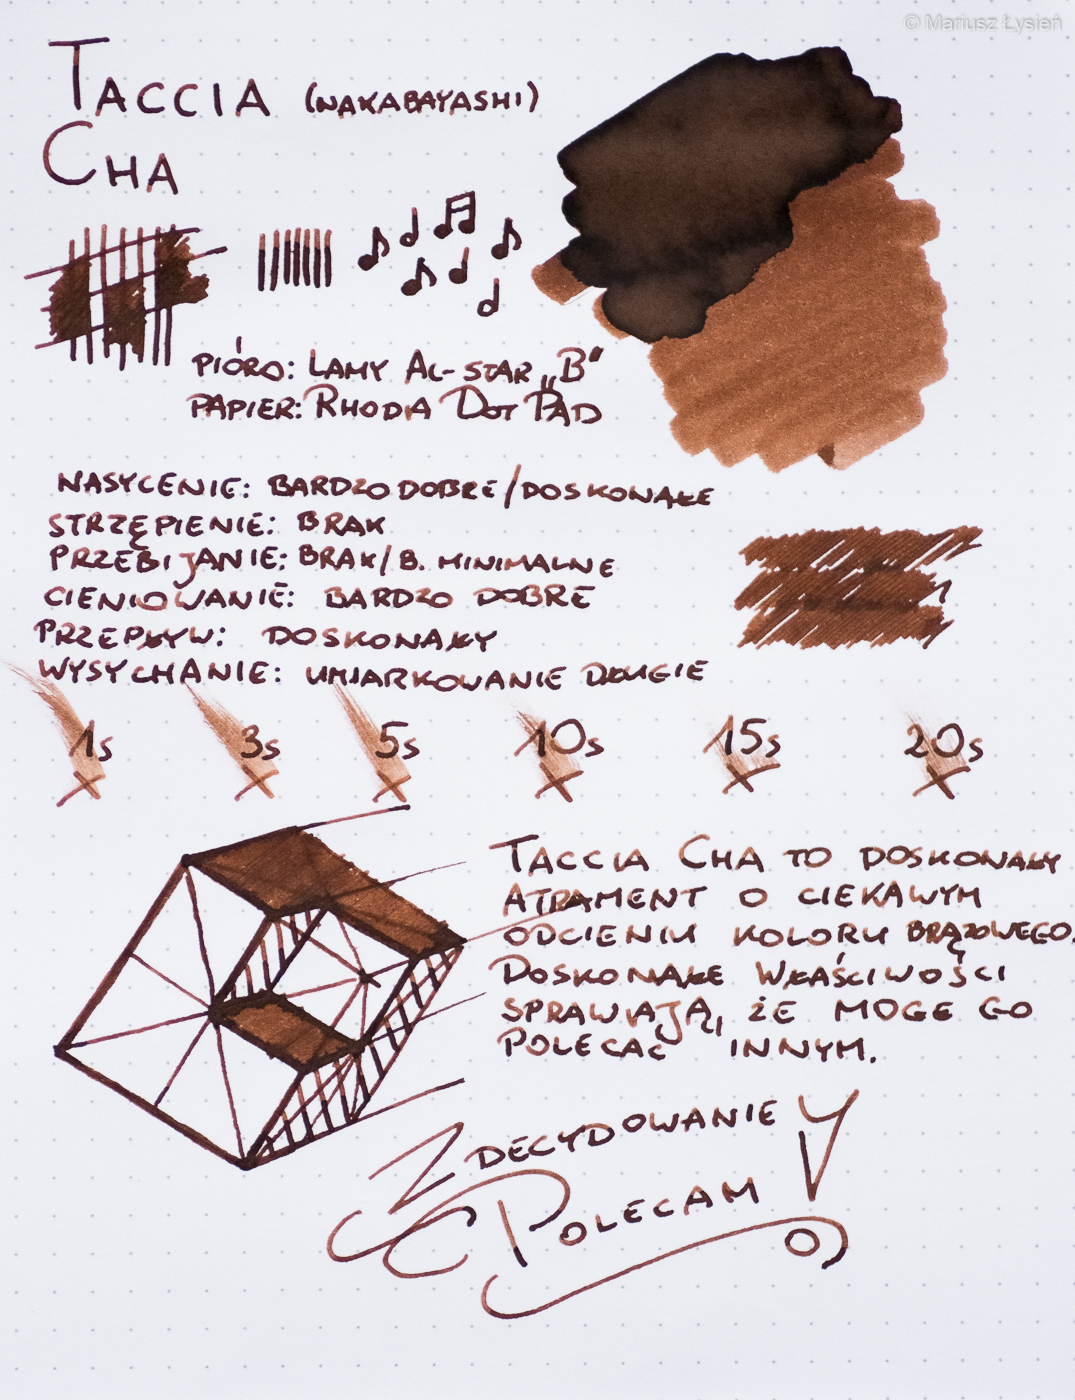 © Mariusz Łysień
TACCIA (NAKABAYASHI)
CHA
PIÓRO: LAMY AL-STAR „B”
PAPIER: RHODIA DOT PAD
NASYCENIE: BARDZO DOBRE/DOSKONAŁE
STRZĘPIENIE: BRAK
PRZEBIJANIE: BRAK/B. MINIMALNE
CIENIOWANIE: BARDZO DOBRE
PRZEPŁYW: DOSKONAŁY
WYSYCHANIE: UMIARKOWANIE DŁUGIE
1s 3s 5s 10s 15s 20s
TACCIA CHA TO DOSKONAŁY
ATRAMENT O CIEKAWYM
ODCIENIU KOLORU BRĄZOWEGO.
DOSKONAŁE WŁAŚCIWOŚCI
SPRAWIAJĄ, ŻE MOGE GO
POLECAĆ INNYM.
ZDECYDOWANIE
POLECAM!